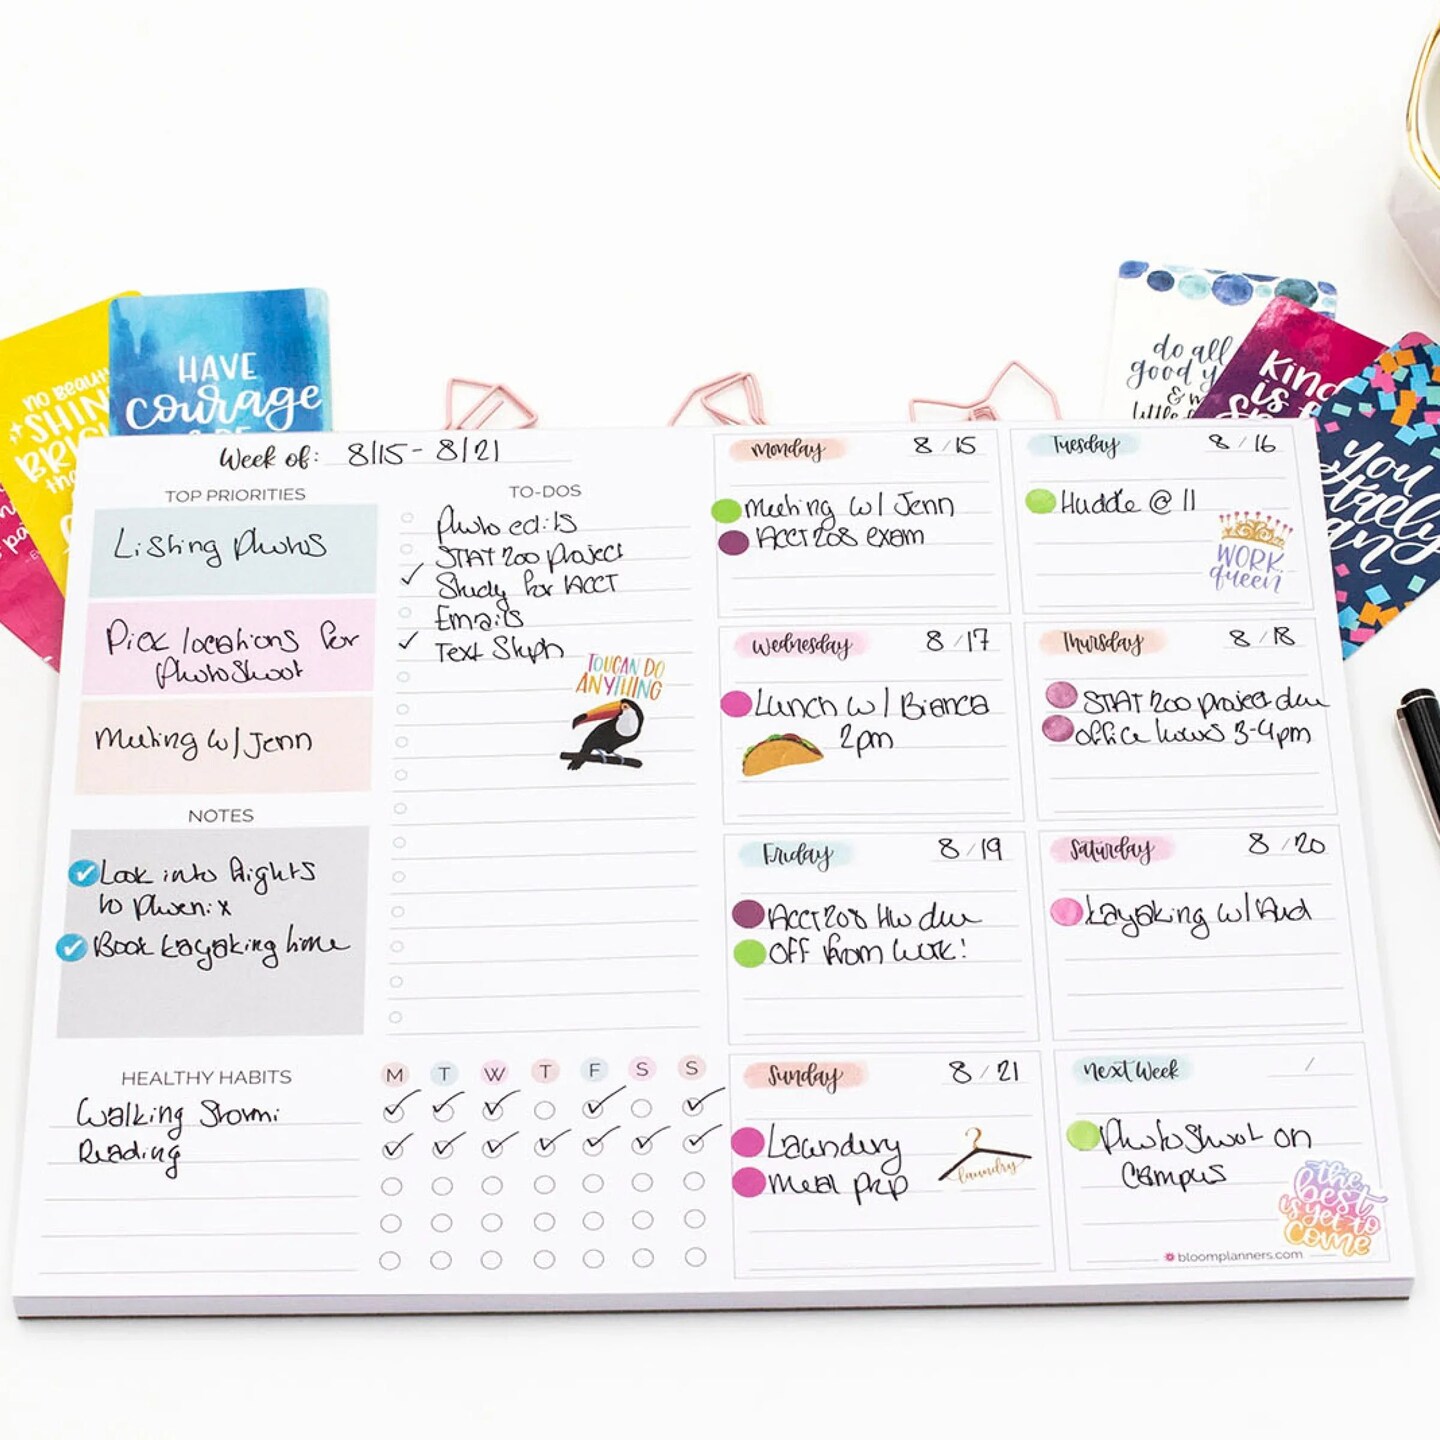 NO BEAUTY
SHINES
BRIGHTER
HAVE
courage
& BE
do all
good y
& m
Kind
is f
you
totally
can
Week of: 8/15 - 8/21
TOP PRIORITIES
Listing Photos
Pick locations for
Photoshoot
Meeting w/ Jenn
NOTES
Look into flights
to Phoenix
Book kayaking time
TO-DOS
Photo edits
STAT 200 Project
Study for ACCT
Emails
Text Steph
TOUCAN DO
ANYTHING
HEALTHY HABITS
M T W T F S S
Walking Stormi
Reading
Monday 8/15
Meeting w/ Jenn
ACCT 208 exam
Tuesday 8/16
Huddle @ 11
WORK
queen
Wednesday 8/17
Lunch w/ Bianca
2pm
Thursday 8/18
STAT 200 project due
office hours 3-4pm
Friday 8/19
ACCT 208 HW due
OFF from work!
Saturday 8/20
Kayaking w/ Aud
Sunday 8/21
Laundry
Meal prep
laundry
next Week /
Photoshoot on
Campus
the
best
is yet to
come
bloomplanners.com